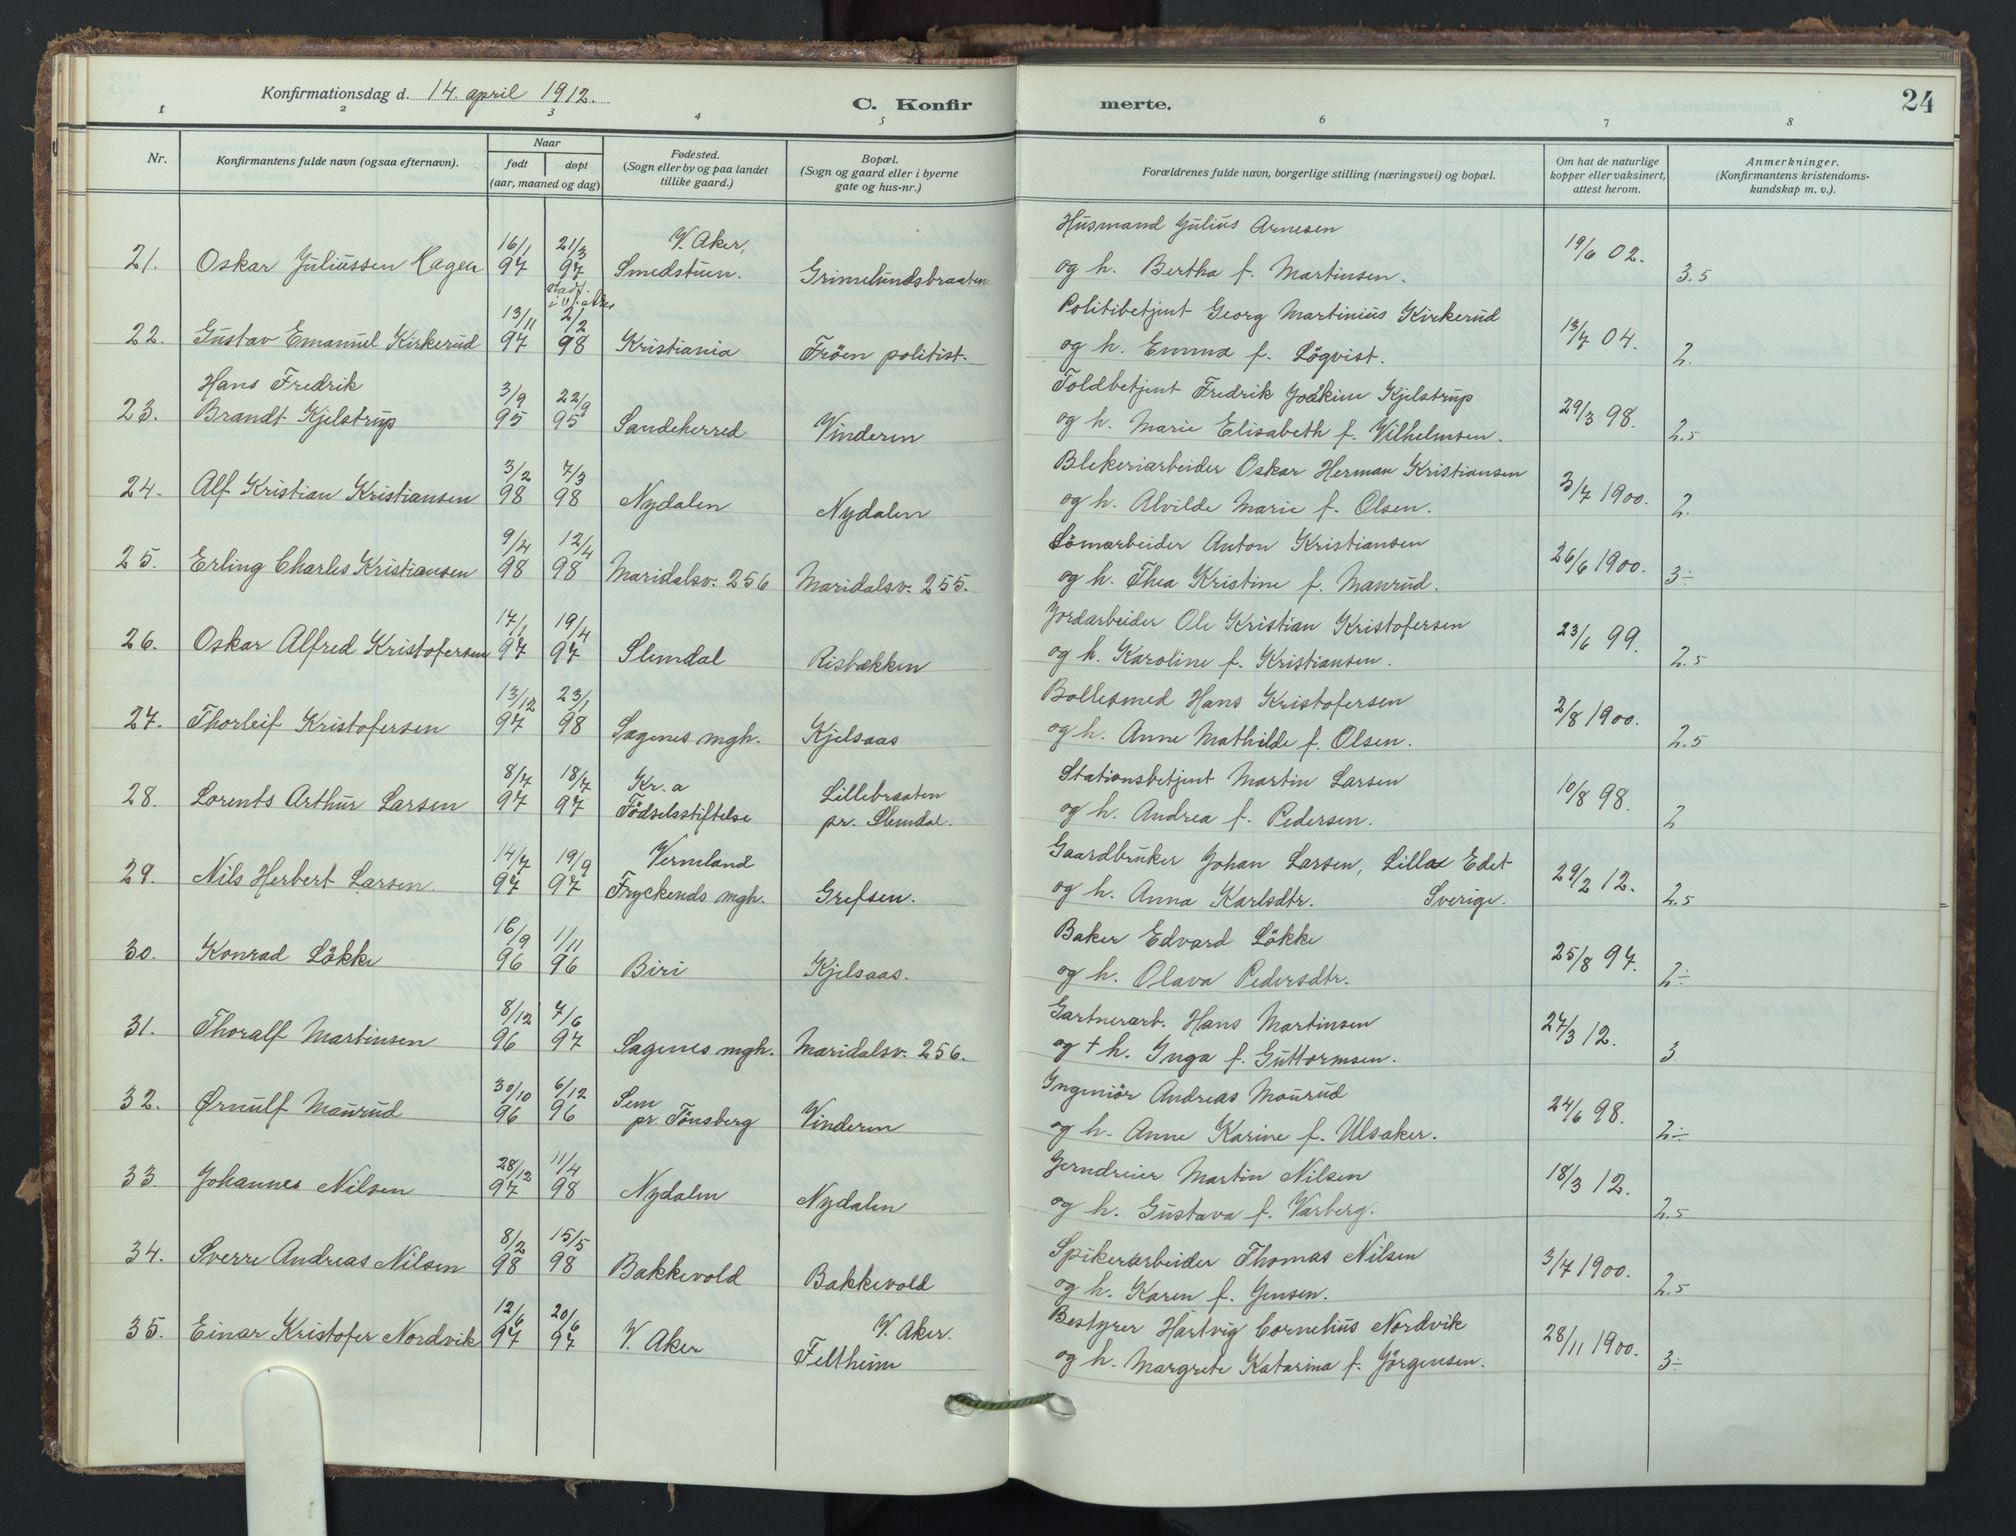 Konfirmationsdag d. 14. april 1912.
C. Konfir
merte.
24
1 2 3 4 5 6 7 8
Nr.
Konfirmantens fulde navn (ogsaa efternavn).
Naar
født
døpt
(aar, maaned og dag)
Fødested.
(Sogn eller by og paa landet
tillike gaard.)
Bopæl.
(Sogn og gaard eller i byerne
gate og hus-nr.)
Forældrenes fulde navn, borgerlige stilling (næringsvei) og bopæl.
Om hat de naturlige
kopper eller vaksinert,
attest herom.
Anmerkninger.
(Konfirmantens kristendoms-
kundskap m. v.).
21. Oskar Juliussen Hagen 16/1 97 21/3 97 V. Aker, Smedstuen. Grimelundsbraaten
Husmand Julius Arnesen
og h. Bertha f. Martinsen. 19/6 02. 3.5
22. Gustav Emanuel Kirkerud 13/11 97 2/2 98 Kristiania Fröen politist.
Politibetjent Georg Martinius Kirkerud
og h. Emma f. Lögvist. 13/7 04. 2.
23. Hans Fredrik
Brandt Kjelstrup 3/9 95 22/9 95 Sandeherred Vinderen
Toldbetjent Fredrik Joakim Kjelstrup
og h. Marie Elisabeth f. Vilhelmsen. 29/3 98. 2.5
24. Alf Kristian Kristiansen 3/2 98 7/3 98 Nydalen Nydalen
Blekeriarbeider Oskar Herman Kristiansen
og h. Alvilde Marie f. Olsen. 3/7 1900. 2.
25. Erling Charles Kristiansen 9/4 98 12/4 98 Maridalsv. 256 Maridalsv. 255.
Sömarbeider Anton Kristiansen
og h. Thea Kristine f. Maurud. 26/6 1900. 3÷
26. Oskar Alfred Kristofersen 17/1 97 19/4 97 Slemdal Risbækken
Jordarbeider Ole Kristian Kristofersen
og h. Karoline f. Kristiansen. 23/6 99. 2.5
27. Thorleif Kristofersen 13/12 97 23/1 98 Sagenes mgh. Kjelsaas
Boltesmed Hans Kristofersen
og h. Anne Mathilde f. Olsen. 2/8 1900. 2.5
28. Lorents Arthur Larsen 8/7 97 18/7 97 Kr.a
Födselsstiftelse Lillebraaten
pr. Slemdal.
Stationsbetjent Martin Larsen
og h. Andrea f. Pedersen. 10/8 98. 2
29. Nils Herbert Larsen. 14/7 97 19/9 97 Vermland
Fryckends mgh. Grefsen.
Gaardbruker Johan Larsen, Lilla Edet
og h. Anna Karlsdtr. Sverige. 29/2 12. 2.5
30. Konrad Lökke 16/9 96 1/11 96 Biri Kjelsaas.
Baker Edvard Lökke
og h. Olava Pedersdtr. 25/8 97. 2÷
31. Thoralf Martinsen 8/12 96 7/6 97 Sagenes mgh. Maridalsv. 256.
Gartnerarb. Hans Martinsen
og † h. Inga f. Guttormsen. 27/3 12. 3
32. Ørnulf Maurud 30/10 96 6/12 96 Sem
pr. Tönsberg Vinderen
Ingeniör Andreas Mourud
og h. Anne Karine f. Ulsaker. 24/6 98. 2÷
33. Johannes Nilsen 28/12 97 11/4 98 Nydalen Nydalen
Jerndreier Martin Nilsen
og h. Gustava f. Varberg. 18/3 12. 2.5
34. Sverre Andreas Nilsen 8/2 98 15/5 98 Bakkevold Bakkevold
Spikerarbeider Thomas Nilsen
og h. Karen f. Jensen. 3/7 1900. 2.5
35. Einar Kristofer Nordvik 12/6 97 20/6 97 V. Aker V. Aker.
Feltheim
Bestyrer Hartvig Cornelius Nordvik
og h. Margrete Katarina f. Jörgensen. 28/11 1900. 3÷